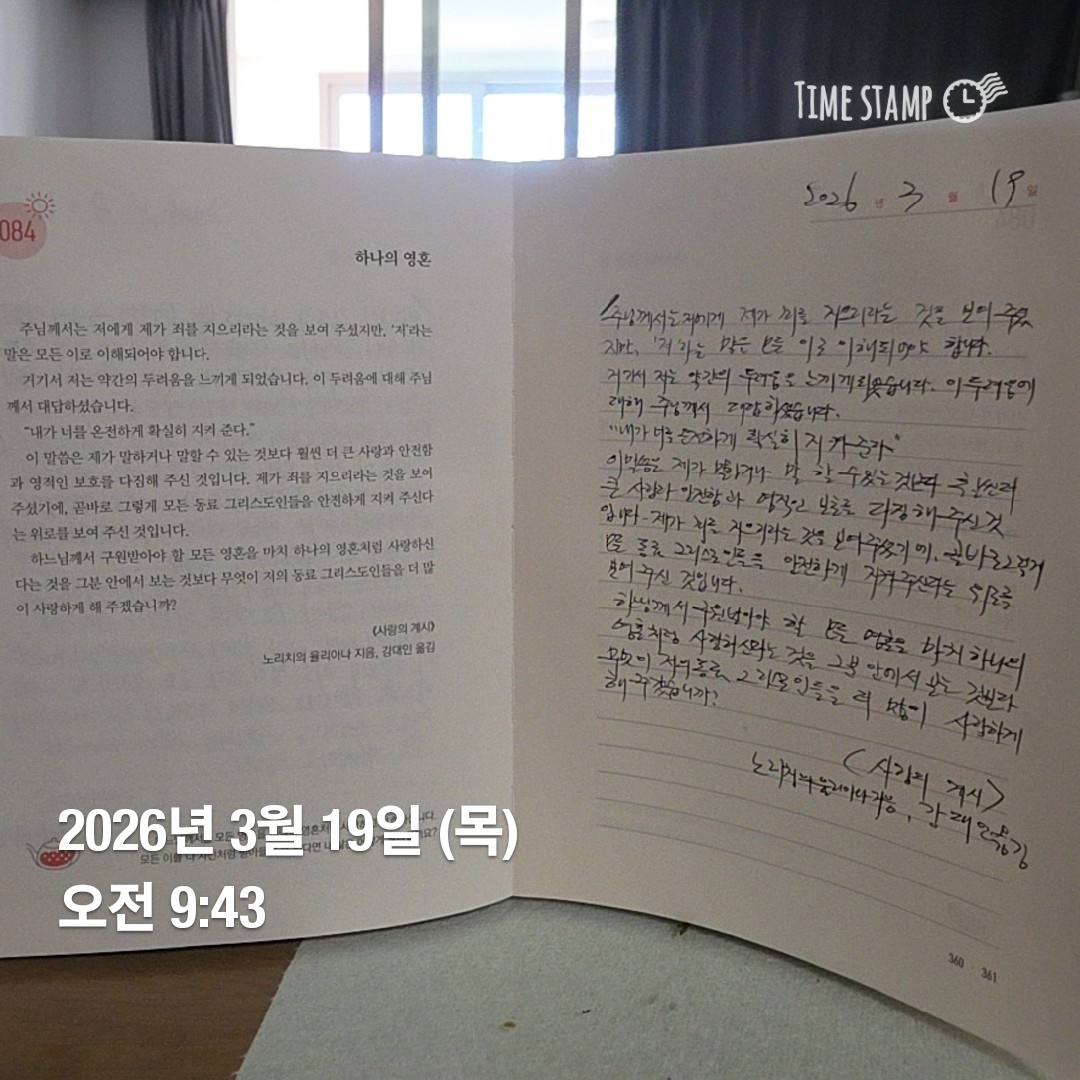 TIME STAMP
084
하나의 영혼
주님께서는 저에게 제가 죄를 지으리라는 것을 보여 주셨지만, '저'라는
말은 모든 이로 이해되어야 합니다.
거기서 저는 약간의 두려움을 느끼게 되었습니다. 이 두려움에 대해 주님
께서 대답하셨습니다.
"내가 너를 온전하게 확실히 지켜 준다."
이 말씀은 제가 말하거나 말할 수 있는 것보다 훨씬 더 큰 사랑과 안전함
과 영적인 보호를 다짐해 주신 것입니다. 제가 죄를 지으리라는 것을 보여
주셨기에, 곧바로 그렇게 모든 동료 그리스도인들을 안전하게 지켜 주신다
는 위로를 보여 주신 것입니다.
하느님께서 구원받아야 할 모든 영혼을 마치 하나의 영혼처럼 사랑하신
다는 것을 그분 안에서 보는 것보다 무엇이 저의 동료 그리스도인들을 더 많
이 사랑하게 해 주겠습니까?
《사랑의 계시》
노리치의 율리아나 지음, 강대인 옮김
2026년 3월 19일 (목)
오전 9:43
2026 년 3 월 19 일
주님께서는 저에게 제가 죄를 지으리라는 것을 보여 주셨
지만, '저'라는 말은 모든 이로 이해되어야 합니다.
거기서 저는 약간의 두려움을 느끼게 되었습니다. 이 두려움에
대해 주님께서 대답하셨습니다.
"내가 너를 온전하게 확실히 지켜 준다"
이 말씀은 제가 말하거나 말 할 수 있는 것보다 훨씬 더
큰 사랑과 안전함과 영적인 보호를 다짐해 주신 것
입니다. 제가 죄를 지으리라는 것을 보여 주셨기에, 곧바로 그렇게
모든 동료 그리스도인들을 안전하게 지켜 주신다는 위로를
보여 주신 것입니다.
하느님께서 구원받아야 할 모든 영혼을 마치 하나의
영혼처럼 사랑하신다는 것을 그분 안에서 보는 것보다
무엇이 저의 동료 그리스도인들을 더 많이 사랑하게
해 주겠습니까?
<사랑의 계시>
노리치의 율리아나 지음, 강대인 옮김
360 361